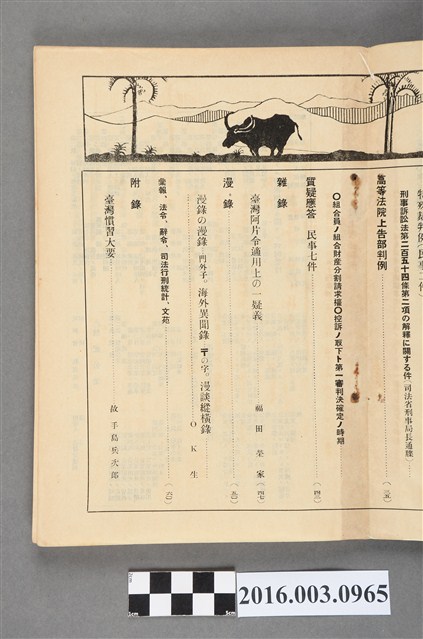 刑事訴訟法第二百五十四條第二項の解釋に關する件（司法省刑事局長通牒）
高等法院上告部判例
〇組合員ノ組合財產分割請求權〇控訴ノ取下ト第一審判決確定ノ時期
質疑應答 民事七件
雜錄
臺灣阿片令適用上の一疑義 福田榮家
漫錄
漫錄の漫錄 門外子。海外異聞錄 〒の字。漫談縱橫錄
O K 生
彙報、法令、辭令、司法行刑統計、文苑
附錄
臺灣慣習大要 故 手島兵次郎
1cm
5cm
2016.003.0965